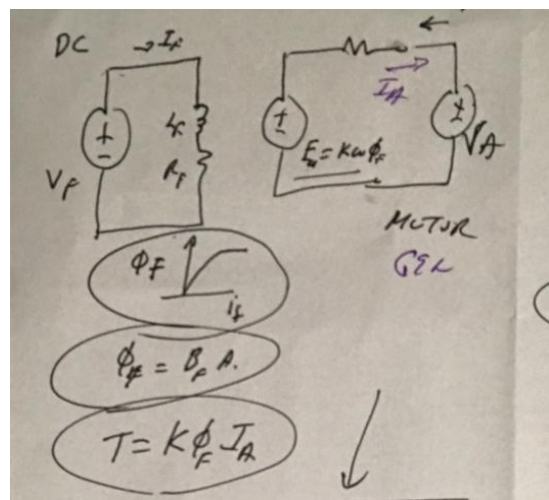 DC → I_F
+
-
V_F
L_F
R_F
I_A
+
-
E_a = Kωϕ_F
+
-
V_A
MOTOR
GEN
ϕ_F
i_f
ϕ_F = B_F A.
T = K ϕ_F I_A